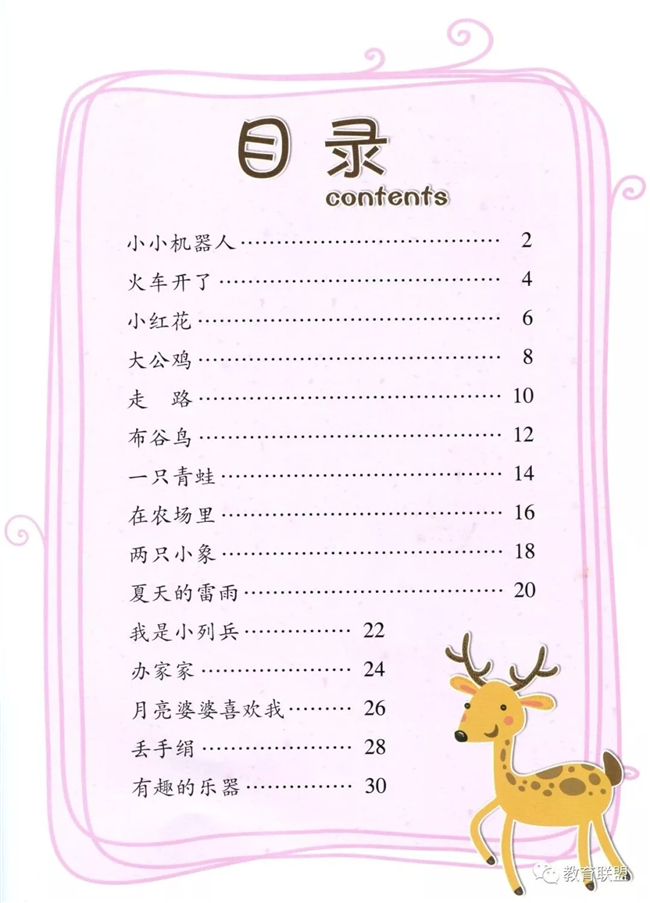 目录
contents
小小机器人……………………………… 2
火车开了………………………………… 4
小红花…………………………………… 6
大公鸡…………………………………… 8
走 路…………………………………… 10
布谷鸟…………………………………… 12
一只青蛙………………………………… 14
在农场里………………………………… 16
两只小象………………………………… 18
夏天的雷雨……………………………… 20
我是小列兵…………… 22
办家家………………… 24
月亮婆婆喜欢我……… 26
丢手绢………………… 28
有趣的乐器…………… 30
教育联盟